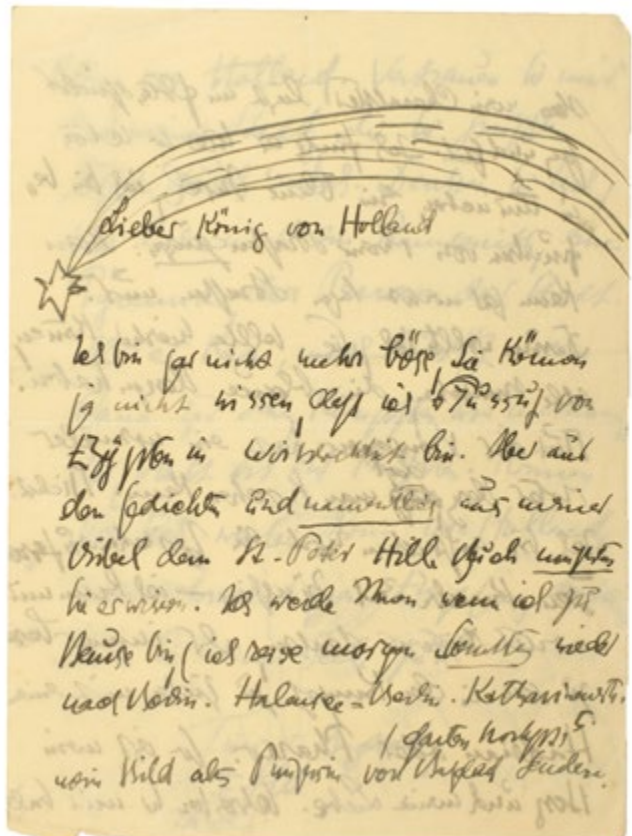 Lieber König von Holland
Ich bin gar nicht mehr böse, Sie können
ja nicht wissen, daß ich Jussuf von
Egypten in Wirklichkeit bin. Aber aus
den Gedichten und namentlich aus meiner
Bibel dem St. Peter Hille Buch mußten
Sie es wissen. Ich werde Ihnen wenn ich zu
Hause bin (ich reise morgen wieder
nach Berlin. Halensee-Berlin. Katharinenstr.
Garten
mein Bild als Prinzessin von Bagdad senden.